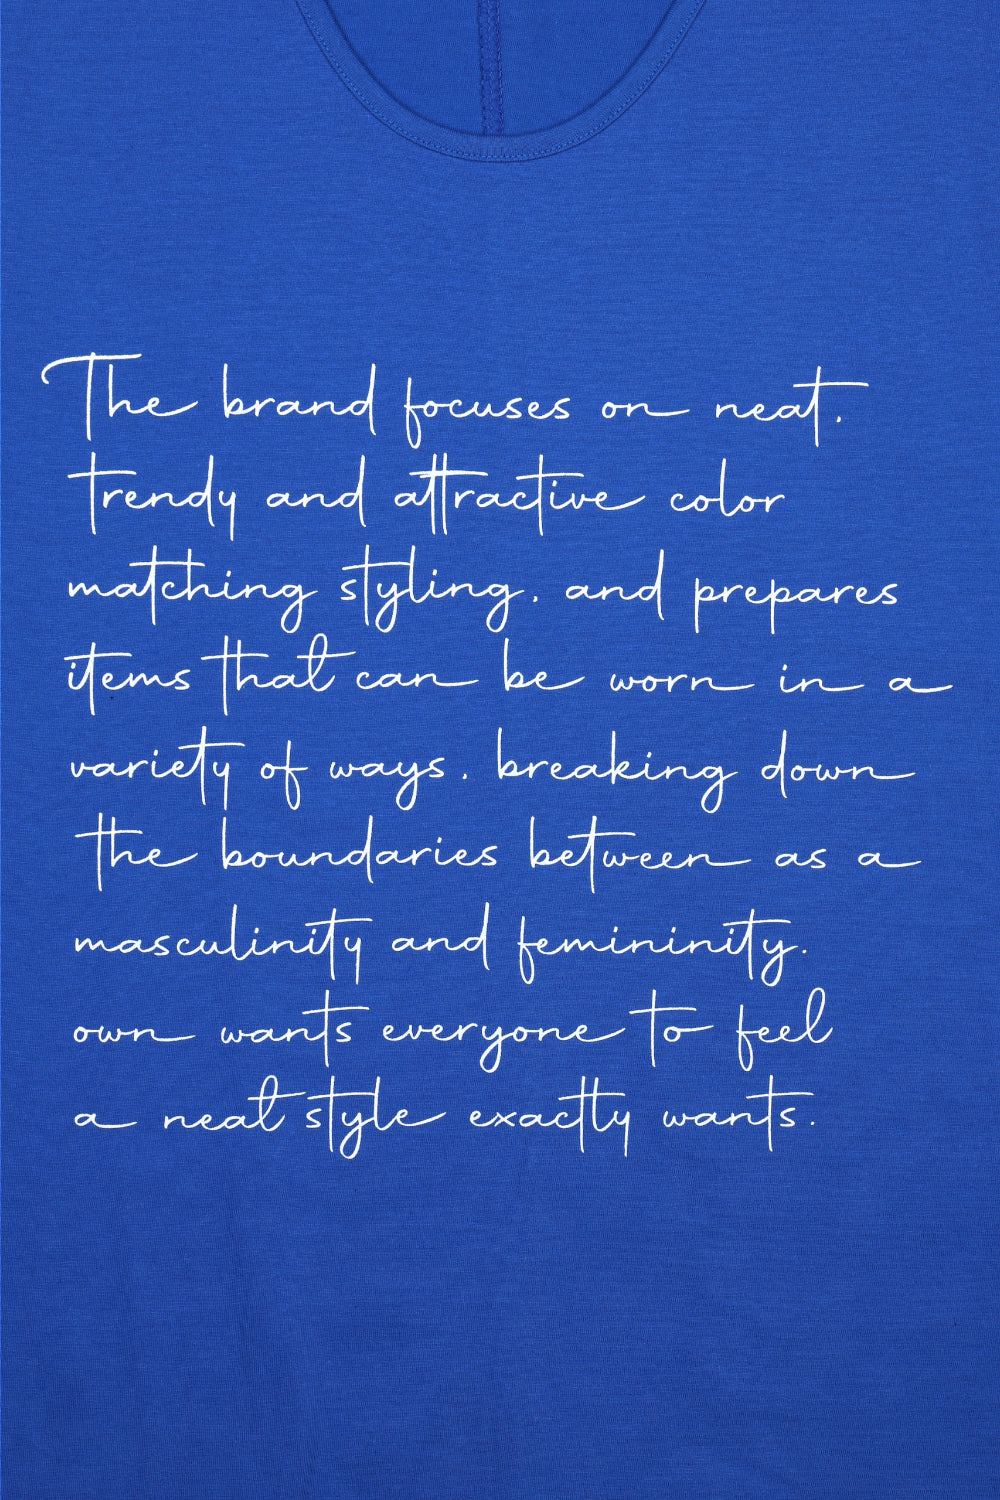 The brand focuses on neat.
trendy and attractive color
matching styling. and prepares
items that can be worn in a
variety of ways. breaking down
the boundaries between as a
masculinity and femininity.
own wants everyone to feel
a neat style exactly wants.